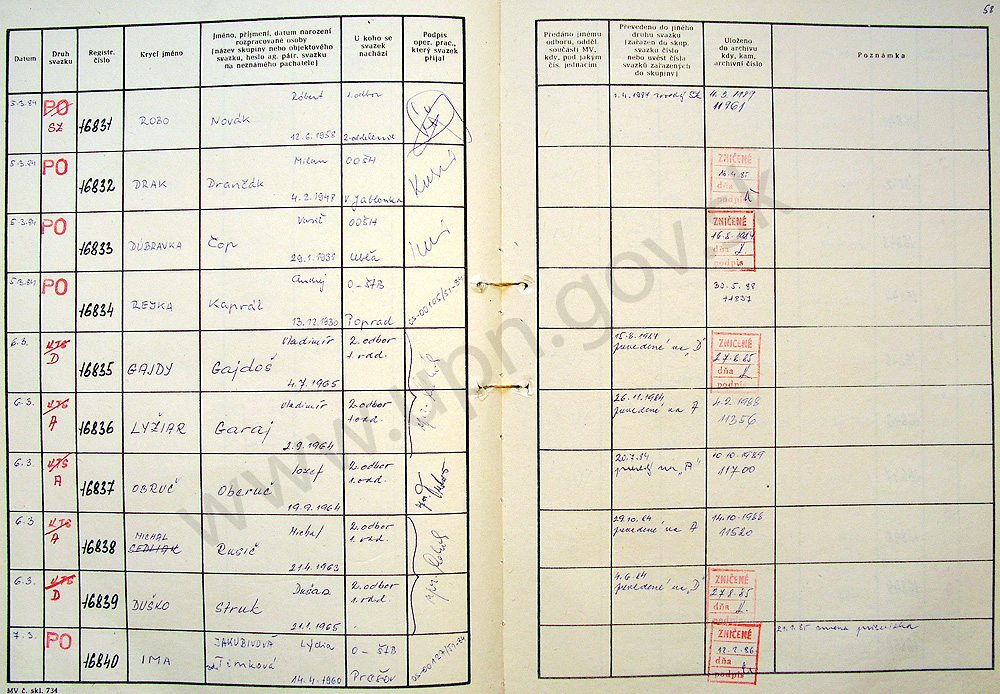 58
Datum
Druh svazku
Registr. číslo
Krycí jméno
Jméno, příjmení, datum narození rozpracované osoby (název skupiny nebo objektového svazku, heslo ag. pátr. svazku na neznámého pachatele)
U koho se svazek nachází
Podpis oper. prac., který svazek přijal
Předáno jinému odboru, odděl. součásti MV, kdy, pod jakým čís. jednacím
Převedeno do jiného druhu svazku (zařazen do skup. svazku číslo nebo uvést čísla svazků zařazených do skupiny)
Uloženo do archivu kdy, kam, archivní číslo
Poznámka
5.3.84 PO SZ 16831 ROBO Róbert Novák 12.6.1958 1. odbor 2. oddelenie
11961
5.3.84 PO 16832 DRAK Milan Drančák 4.2.1948 OOŠH V. Jablonka
ZNIČENÉ 16.4.85 dňa podpis
5.3.84 PO 16833 DÚBRAVKA Čop 29.1.1931 OOŠH Ubľa
ZNIČENÉ 16.8.1984 dňa podpis
5.3.84 PO 16834 REJKA Andrej Kaprál 13.12.1930 O-ŠTB Poprad
30.5.88
6.3. D 16835 GAJDY Vladimír Gajdoš 4.7.1965 2. odbor 1. odd.
15.8.1984 prevedené na „D"
ZNIČENÉ 27.8.85 dňa podpis
6.3. A 16836 LYŽIAR Vladimír Garaj 2.9.1964 2. odbor 1. odd.
26.11.1984 prevedené na A
11356
6.3. A 16837 OBRUČ Jozef Oberuč 19.9.1964 2. odbor 1. odd.
20.7.84 na „A"
10.10.1989 11700
6.3 A 16838 MICHAL SEDLIAK Michal Rusič 21.4.1963 2. odbor 1. odd.
29.10.84 prevedené na A
14.10.1988 11520
6.3. D 16839 DUŠKO Dušan Struk 21.1.1965 2. odbor 1. odd.
4.6.84 prevedené na „D"
ZNIČENÉ 27.8.85 dňa
7.3. PO 16840 IMA JAKUBIVOVÁ Lýdia Timková 14.4.1960 O-ŠTB Prešov
ZNIČENÉ dňa podpis
MV č. skl. 734
www.upn.gov.sk